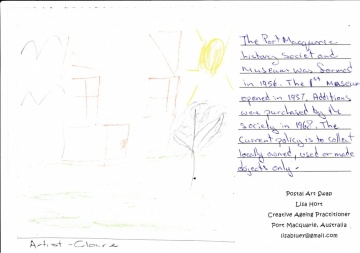 The Port Macquarie
history Societ and
Museum was formed
in 1956. The 1st Museum
opened in 1957. Additions
were purchased by the
society in 1960. The
Current policy is to collect
locally owned, used or made
objects only.
Postal Art Swap
Lisa Hort
Creative Ageing Practitioner
Port Macquarie, Australia
lisabluer@gmail.com
Artist - Claire